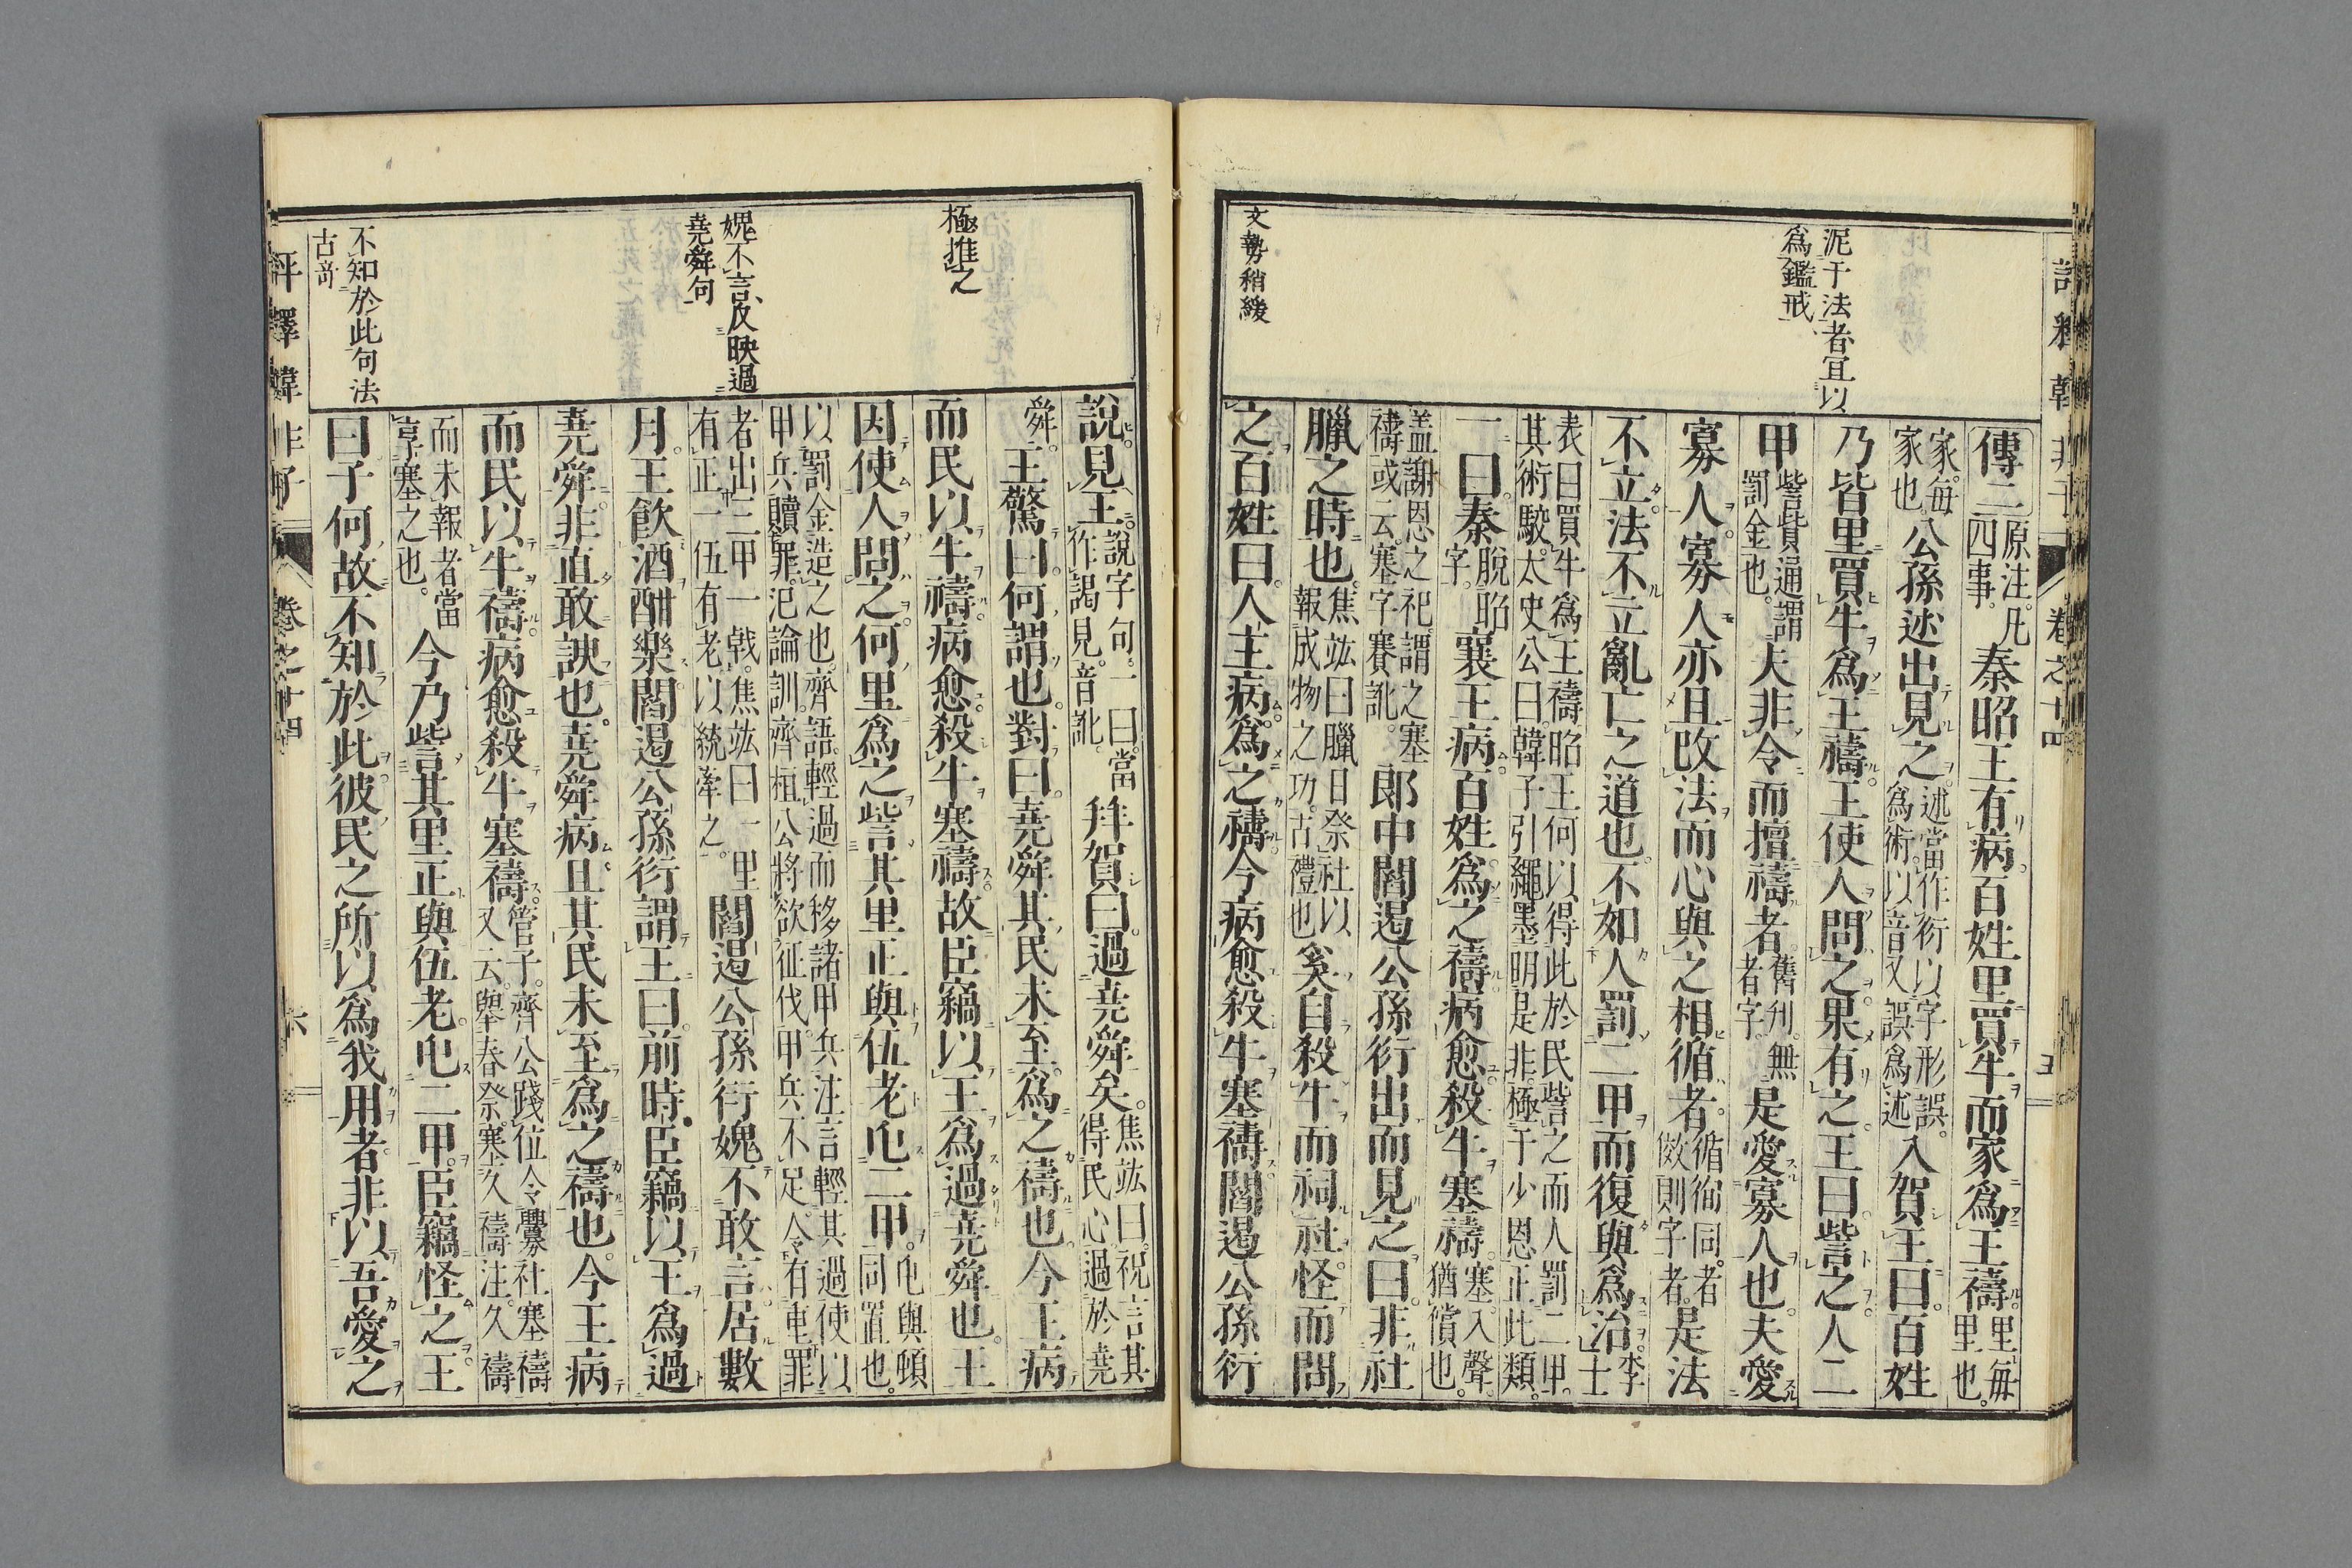 泥于法者宜以
爲鑑戒
文勢稍緩
傳二原注。凡四事。秦昭王有病。百姓里買牛而家爲王禱。里每里也。
家。每家也公孫述出見之。述當作衍以字形誤。爲術。以音又誤爲述入賀王曰。百姓
乃皆里買牛爲王禱。王使人問之。果有之。王曰訾之人二
甲訾貲通謂罰金也。夫非令而擅禱者。舊刋。無者字。是愛寡人也。夫愛
寡人。寡人亦且改法而心與之相循者。循徇同。者倣則字者。是法
不立。法不立亂亡之道也。不如人罰二甲而復與爲治。李士
表曰買牛爲王禱昭王何以得此於民訾之而人罰二甲。其術駮。太史公曰。韓子引繩墨明是非。極于少恩正此類。
一曰。秦脫昭字。襄王病。百姓爲之禱。病愈殺牛塞禱。塞。入聲。猶償也。
盖謝恩之祀。謂之塞禱或云。塞字賽訛。郎中閻遏公孫衍出而見之曰。非社
臘之時也。焦竑曰臘日祭社以報成物之功。古禮也奚自殺牛而祠社。怪而問
之。百姓曰。人主病。爲之禱。今病愈殺牛塞禱。閻遏公孫衍
卷之十四
五
極推之
媿不言反映過
堯舜句
不知於此句法
古奇
說。見王。說字句。一曰。當作謁見。音訛。拜賀曰。過堯舜矣。焦竑曰。祝言其得民心過於堯
舜。王驚曰。何謂也。對曰。堯舜其民未至爲之禱也。今王病
而民以牛禱。病愈殺牛塞禱。故臣竊以王爲過堯舜也。王
因使人問之。何里爲之。訾其里正與伍老屯二甲。屯與頓同置也。
以罰金造之也。齊語。輕過而移諸甲兵注言輕其過使以甲兵贖罪。氾論訓。齊桓公將欲征伐。甲兵不足。令有重罪
者出三甲一戟。焦竑曰一里有正一伍有老以統牽之。閻遏公孫衍媿不敢言。居數
月。王飮酒酣樂。閻遏公孫衍謂王曰。前時。臣竊以王爲過
堯舜。非直敢諛也。堯舜病。且其民未至爲之禱也。今王病
而民以牛禱。病愈殺牛塞禱。管子。齊公踐位令釁社塞禱又云。與春祭。塞久禱注。久禱
而未報者當享塞之也。今乃訾其里正與伍老屯二甲。臣竊怪之。王
曰。子何故不知於此。彼民之所以爲我用者。非以吾愛之
評釋韓非子
卷之十四
六